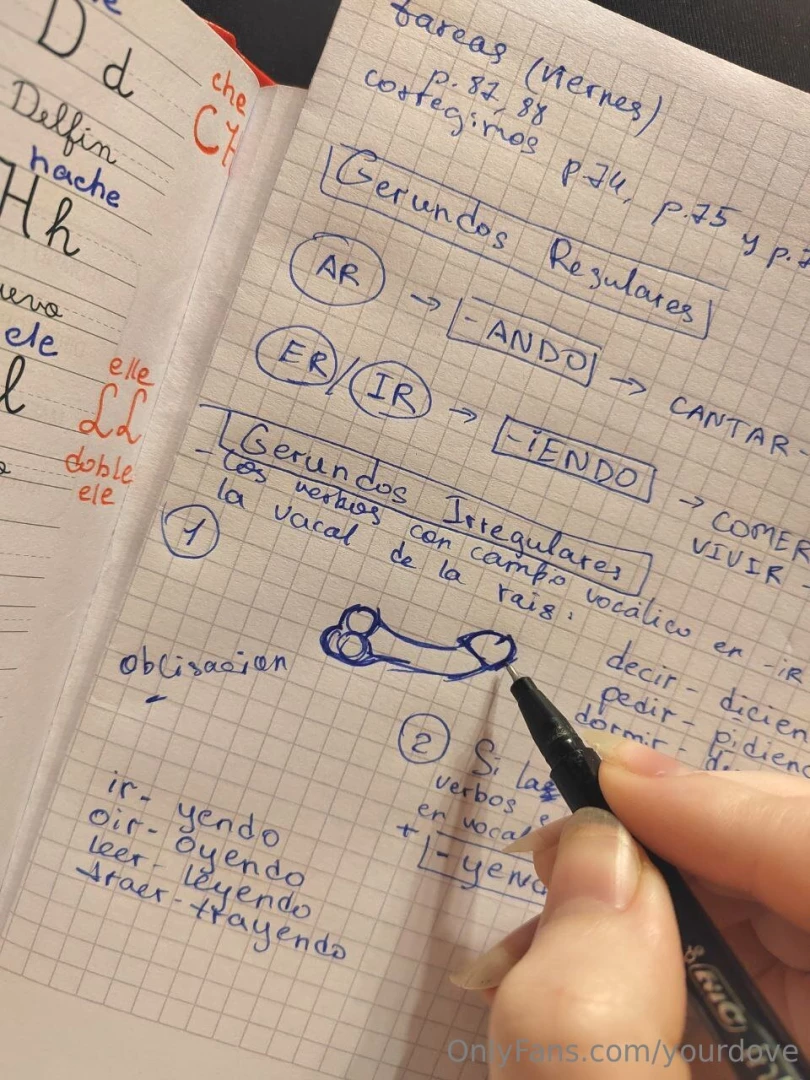 D d
Delfin
hache
H h
ele
l
che
elle
LL
doble
ele
tareas (viernes)
p. 87, 88
corregimos p. 74, p. 75 y p. 7
Gerundos Regulares
AR → -ANDO → CANTAR-
ER / IR → -iENDO → COMER
VIVIR
Gerundos Irregulares
1
- Los verbos con campo vocálico en -iR
la vacal de la raig:
decir - dicien
pedir - pidiend
dormir - d
obligacion
2 Si las
verbos e
en vocal
+ -yend
ir - yendo
oir - oyendo
leer - leyendo
traer - trayendo
BIC
OnlyFans.com/yourdove